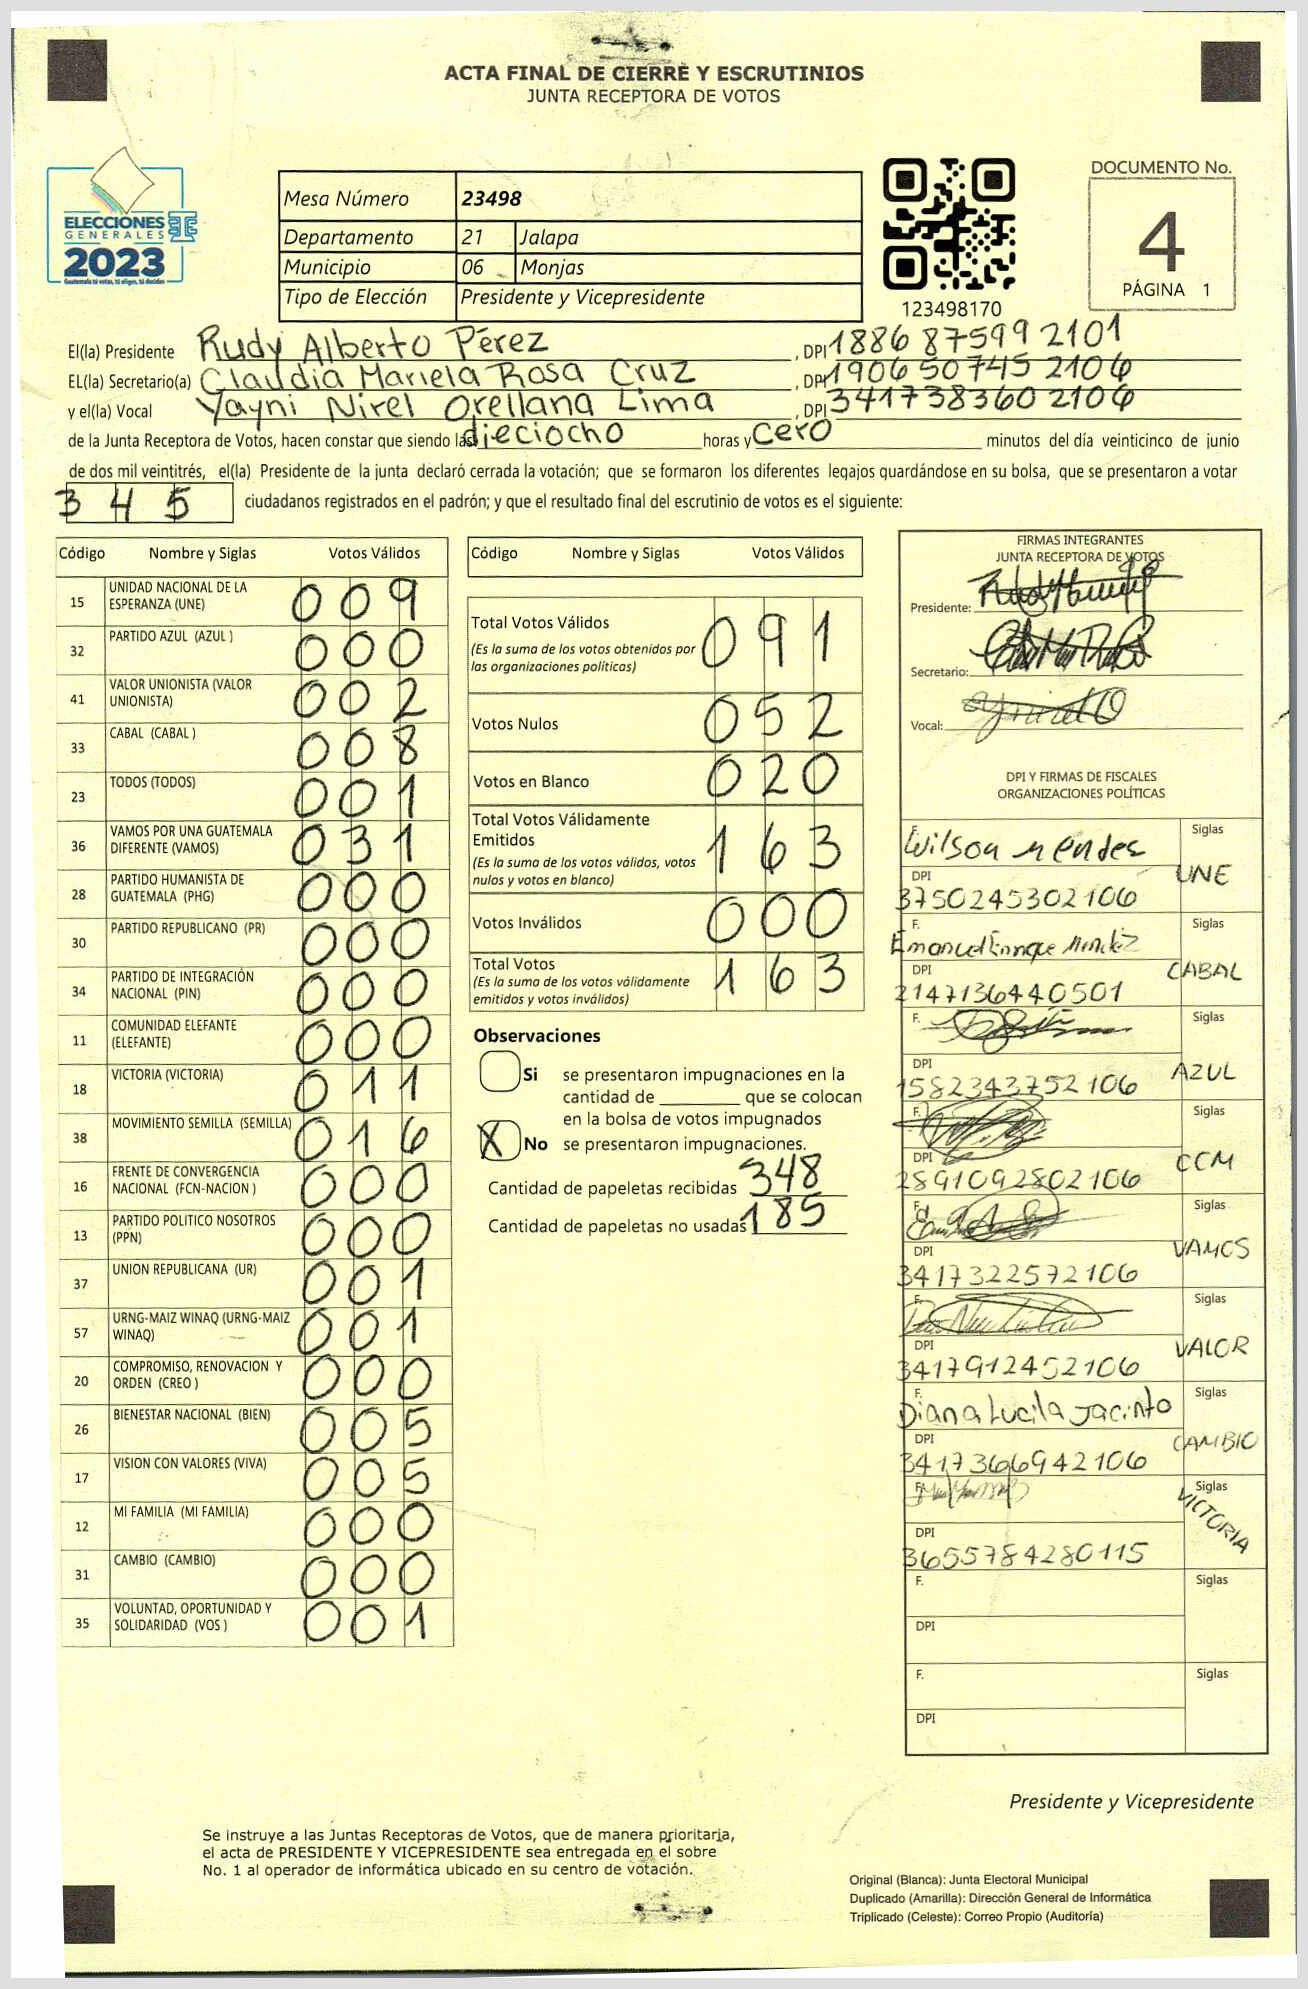 ACTA FINAL DE CIERRE Y ESCRUTINIOS
JUNTA RECEPTORA DE VOTOS
ELECCIONES
GENERALES
2023
Guatemala tú votas, tú eliges, tú decides
Mesa Número 23498
Departamento 21 Jalapa
Municipio 06 Monjas
Tipo de Elección Presidente y Vicepresidente
123498170
DOCUMENTO No.
4
PÁGINA 1
El(la) Presidente Rudy Alberto Pérez , DPI 1886 87599 2101
EL(la) Secretario(a) Claudia Mariela Rosa Cruz , DPI 1906 50745 2106
y el(la) Vocal Yayni Nirel Orellana Lima , DPI 341738360 2106
de la Junta Receptora de Votos, hacen constar que siendo las dieciocho horas y cero minutos del día veinticinco de junio
de dos mil veintitrés, el(la) Presidente de la junta declaró cerrada la votación; que se formaron los diferentes legajos guardándose en su bolsa, que se presentaron a votar
3 4 5 ciudadanos registrados en el padrón; y que el resultado final del escrutinio de votos es el siguiente:
Código Nombre y Siglas Votos Válidos
15 UNIDAD NACIONAL DE LA
ESPERANZA (UNE) 0 0 9
32 PARTIDO AZUL (AZUL ) 0 0 0
41 VALOR UNIONISTA (VALOR
UNIONISTA) 0 0 2
33 CABAL (CABAL ) 0 0 8
23 TODOS (TODOS) 0 0 1
36 VAMOS POR UNA GUATEMALA
DIFERENTE (VAMOS) 0 3 1
28 PARTIDO HUMANISTA DE
GUATEMALA (PHG) 0 0 0
30 PARTIDO REPUBLICANO (PR) 0 0 0
34 PARTIDO DE INTEGRACIÓN
NACIONAL (PIN) 0 0 0
11 COMUNIDAD ELEFANTE
(ELEFANTE) 0 0 0
18 VICTORIA (VICTORIA) 0 1 1
38 MOVIMIENTO SEMILLA (SEMILLA) 0 1 6
16 FRENTE DE CONVERGENCIA
NACIONAL (FCN-NACION ) 0 0 0
13 PARTIDO POLITICO NOSOTROS
(PPN) 0 0 0
37 UNION REPUBLICANA (UR) 0 0 1
57 URNG-MAIZ WINAQ (URNG-MAIZ
WINAQ) 0 0 1
20 COMPROMISO, RENOVACION Y
ORDEN (CREO ) 0 0 0
26 BIENESTAR NACIONAL (BIEN) 0 0 5
17 VISION CON VALORES (VIVA) 0 0 5
12 MI FAMILIA (MI FAMILIA) 0 0 0
31 CAMBIO (CAMBIO) 0 0 0
35 VOLUNTAD, OPORTUNIDAD Y
SOLIDARIDAD (VOS ) 0 0 1
Código Nombre y Siglas Votos Válidos
Total Votos Válidos 0 9 1
(Es la suma de los votos obtenidos por
las organizaciones políticas)
Votos Nulos 0 5 2
Votos en Blanco 0 2 0
Total Votos Válidamente
Emitidos 1 6 3
(Es la suma de los votos válidos, votos
nulos y votos en blanco)
Votos Inválidos 0 0 0
Total Votos 1 6 3
(Es la suma de los votos válidamente
emitidos y votos inválidos)
Observaciones
Si se presentaron impugnaciones en la
cantidad de ________ que se colocan
en la bolsa de votos impugnados
X No se presentaron impugnaciones.
Cantidad de papeletas recibidas 348
Cantidad de papeletas no usadas 185
FIRMAS INTEGRANTES
JUNTA RECEPTORA DE VOTOS
Presidente:
Secretario:
Vocal:
DPI Y FIRMAS DE FISCALES
ORGANIZACIONES POLÍTICAS
F. Wilson Mendes Siglas
DPI UNE
3750245302106
F. Emanuel Enrique Siglas
DPI CABAL
2147136440501
F. Siglas
DPI AZUL
1582343752106
F. Siglas
DPI CCM
2891092802106
F. Siglas
DPI VAMOS
3417322572106
F. Siglas
DPI VALOR
3417912452106
F. Diana Lucila Jacinto Siglas
DPI CAMBIO
3417366942106
F. Siglas
DPI VICTORIA
3655784280115
F. Siglas
DPI
F. Siglas
DPI
Presidente y Vicepresidente
Se instruye a las Juntas Receptoras de Votos, que de manera prioritaria,
el acta de PRESIDENTE Y VICEPRESIDENTE sea entregada en el sobre
No. 1 al operador de informática ubicado en su centro de votación.
Original (Blanca): Junta Electoral Municipal
Duplicado (Amarilla): Dirección General de Informática
Triplicado (Celeste): Correo Propio (Auditoría)